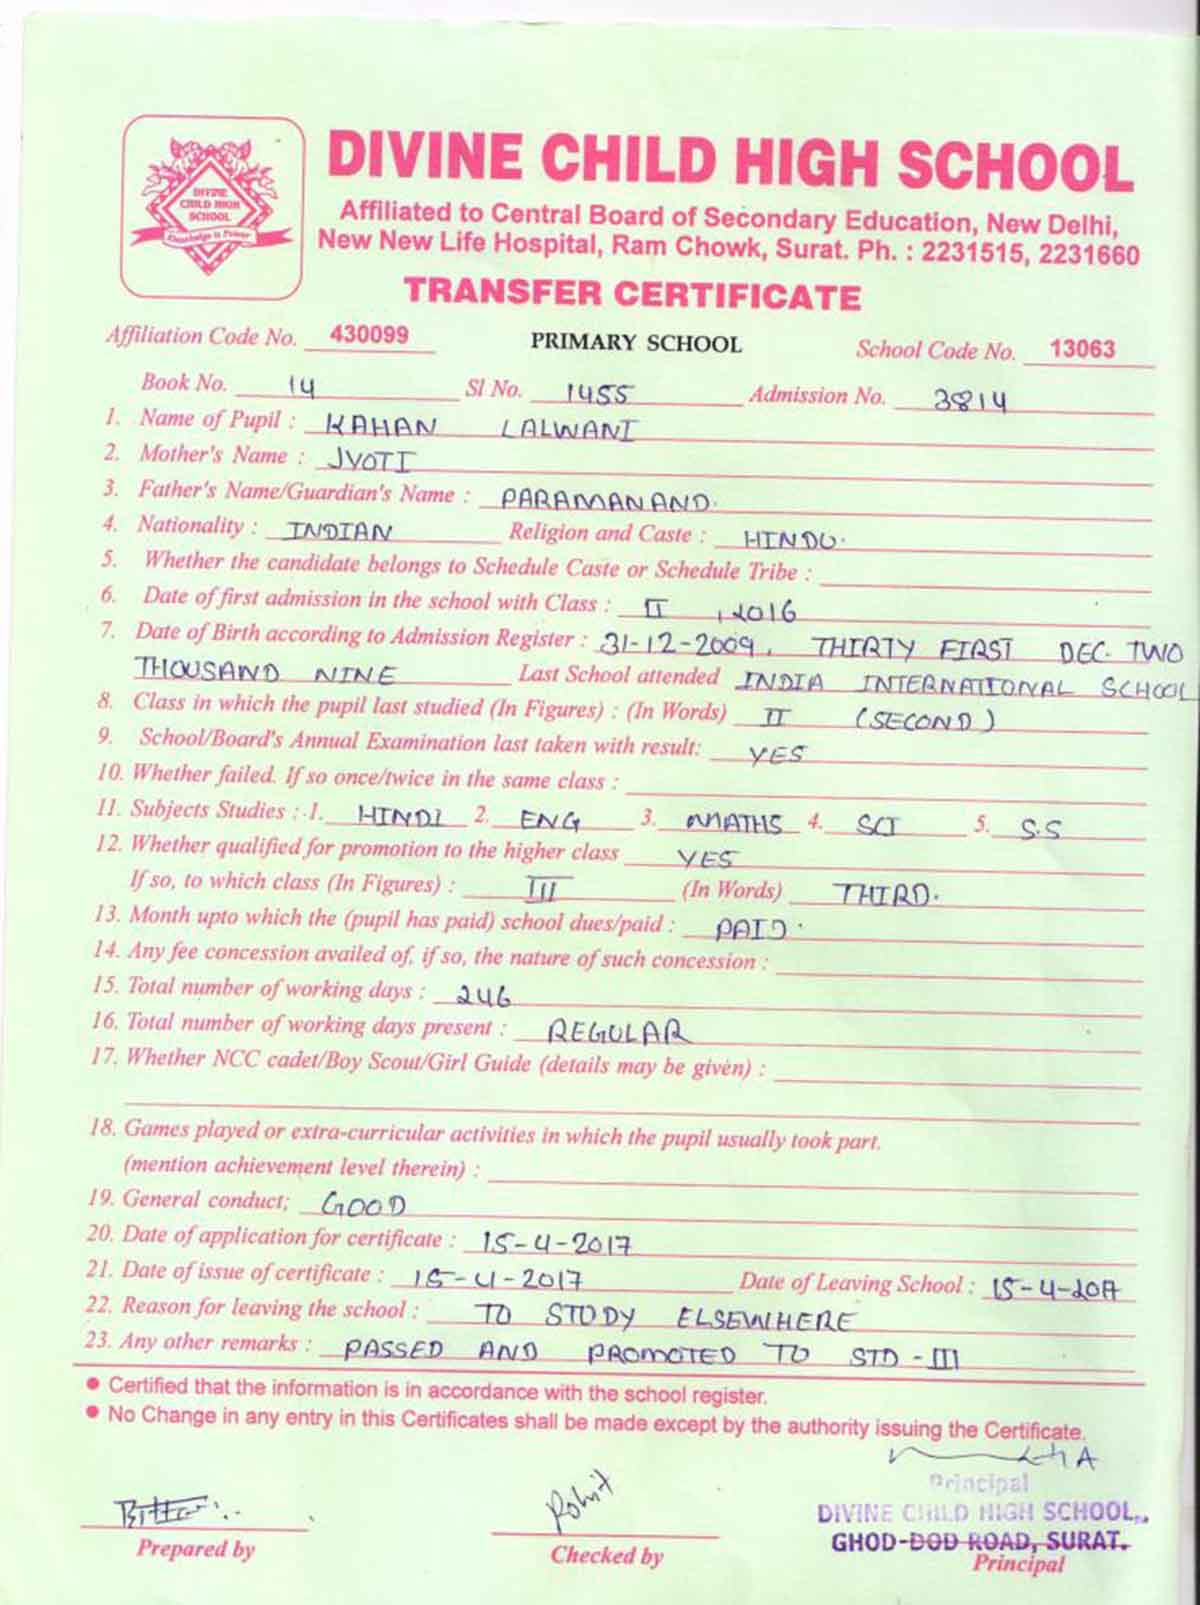 DIVINE CHILD HIGH SCHOOL
DIVINE
CHILD HIGH
SCHOOL
Knowledge is Power
Affiliated to Central Board of Secondary Education, New Delhi,
New New Life Hospital, Ram Chowk, Surat. Ph. : 2231515, 2231660
TRANSFER CERTIFICATE
Affiliation Code No. 430099 PRIMARY SCHOOL School Code No. 13063
Book No. 14 Sl No. 1455 Admission No. 3814
1. Name of Pupil : KAHAN LALWANI
2. Mother's Name : JYOTI
3. Father's Name/Guardian's Name : PARAMANAND.
4. Nationality : INDIAN Religion and Caste : HINDU.
5. Whether the candidate belongs to Schedule Caste or Schedule Tribe :
6. Date of first admission in the school with Class : II , 2016
7. Date of Birth according to Admission Register : 31-12-2009, THIRTY FIRST DEC. TWO
THOUSAND NINE Last School attended INDIA INTERNATIONAL SCHOOL
8. Class in which the pupil last studied (In Figures) : (In Words) II (SECOND)
9. School/Board's Annual Examination last taken with result: YES
10. Whether failed. If so once/twice in the same class :
11. Subjects Studies : 1. HINDI 2. ENG 3. MATHS 4. SCI 5. S.S
12. Whether qualified for promotion to the higher class YES
If so, to which class (In Figures) : III (In Words) THIRD.
13. Month upto which the (pupil has paid) school dues/paid : PAID.
14. Any fee concession availed of, if so, the nature of such concession :
15. Total number of working days : 246
16. Total number of working days present : REGULAR
17. Whether NCC cadet/Boy Scout/Girl Guide (details may be given) :
18. Games played or extra-curricular activities in which the pupil usually took part.
(mention achievement level therein) :
19. General conduct; GOOD
20. Date of application for certificate : 15-4-2017
21. Date of issue of certificate : 15-4-2017 Date of Leaving School : 15-4-2017
22. Reason for leaving the school : TO STUDY ELSEWHERE
23. Any other remarks : PASSED AND PROMOTED TO STD - III
• Certified that the information is in accordance with the school register.
• No Change in any entry in this Certificates shall be made except by the authority issuing the Certificate.
Principal
DIVINE CHILD HIGH SCHOOL,
GHOD-DOD ROAD, SURAT.
Rohit
Prepared by Checked by Principal